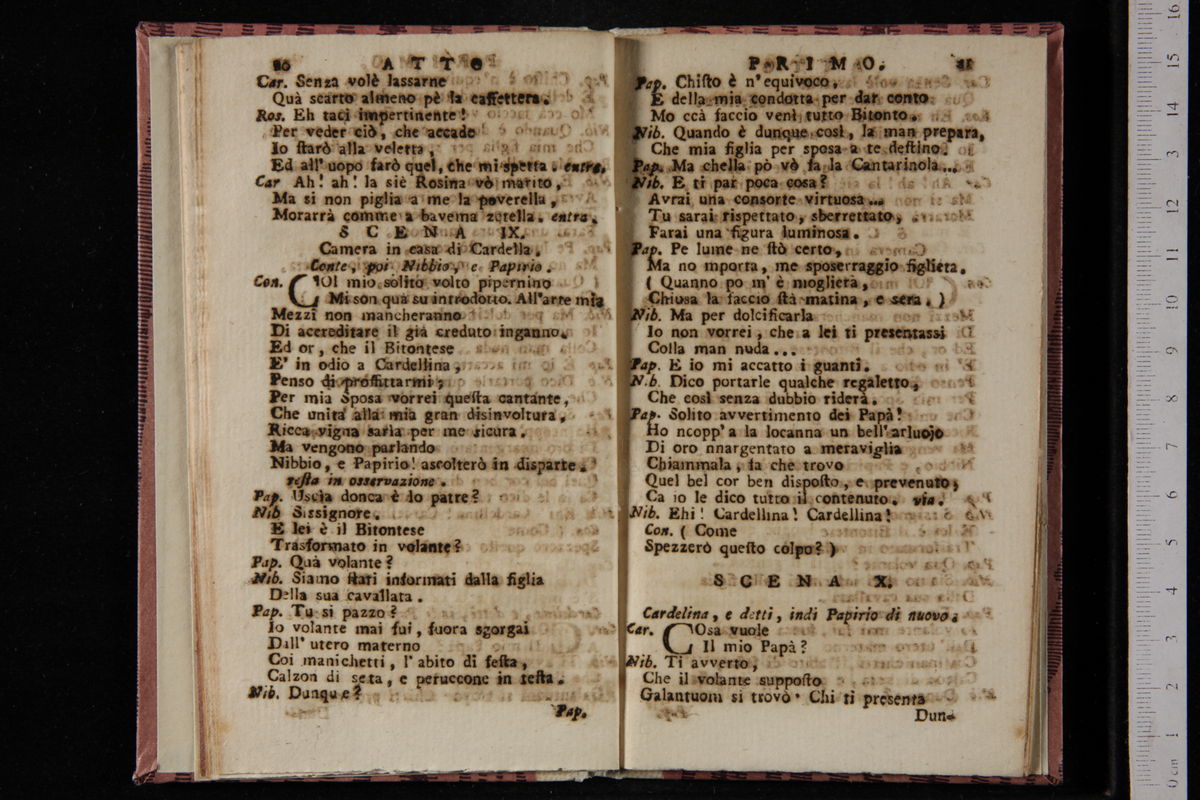 20 A T T O
Car. Senza volè lassarne
Quà scarto almeno pè la caffettera.
Ros. Eh taci impertinente!
Per veder ciò, che accade
Io ſtarò alla veletta,
Ed all' uopo farò quel, che mi spetta. entra.
Car Ah! ah! la siè Rosina vò marito,
Ma si non piglia a me la poverella,
Morarrà comme a bavema zetella. entra.
S C E N A IX.
Camera in casa di Cardella.
Conte, poi Nibbio, e Papirio.
Con. COl mio solito volto pipernino
Mi son quà su introdotto. All'arte mia
Mezzi non mancheranno
Di accreditare il già creduto inganno.
Ed or, che il Bitontese
E' in odio a Cardellina,
Penso di proffittarmi;
Per mia Sposa vorrei queſta cantante,
Che unita alla mia gran disinvoltura,
Ricca vigna sarìa per me sicura.
Ma vengono parlando
Nibbio, e Papirio! ascolterò in disparte.
reſta in osservazione.
Pap. Uscìa donca è lo patre?
Nib Sissignore.
E lei è il Bitontese
Trasformato in volante?
Pap. Quà volante?
Nib. Siamo ſtati informati dalla figlia
Della sua cavallata.
Pap. Tu si pazzo?
Io volante mai fui, fuora sgorgai
Dall' utero materno
Coi manichetti, l' abito di feſta,
Calzon di seta, e peruccone in teſta.
Nib. Dunque?
Pap.
P R I M O. 21
Pap. Chiſto è n' equivoco,
E della mia condotta per dar conto
Mo ccà faccio venì tutto Bitonto.
Nib. Quando è dunque così, la man prepara,
Che mia figlia per sposa a te deſtino.
Pap. Ma chella pò vò fa la Cantarinola...
Nib. E ti par poca cosa?
Avrai una consorte virtuosa...
Tu sarai rispettato, sberrettato,
Farai una figura luminosa.
Pap. Pe lume ne ſtò certo,
Ma no mporta, me sposerraggio figlieta.
( Quanno po m' è moglierà,
Chiusa la faccio ſtà matina, e sera. )
Nib. Ma per dolcificarla
Io non vorrei, che a lei ti presentassi
Colla man nuda...
Pap. E io mi accatto i guanti.
N.b. Dico portarle qualche regaletto,
Che così senza dubbio riderà.
Pap. Solito avvertimento dei Papà!
Ho ncopp' a la locanna un bell' arluojo
Di oro nnargentato a meraviglia
Chiammala, fa che trovo
Quel bel cor ben dispoſto, e prevenuto,
Ca io le dico tutto il contenuto. via.
Nib. Ehi! Cardellina! Cardellina!
Con. ( Come
Spezzerò queſto colpo? )
S C E N A X.
Cardelina, e detti, indi Papirio di nuovo.
Car. COsa vuole
Il mio Papà?
Nib. Ti avverto,
Che il volante suppoſto
Galantuom si trovò. Chi ti presenta
Dun-
0 cm 1 2 3 4 5 6 7 8 9 10 11 12 13 14 15 16